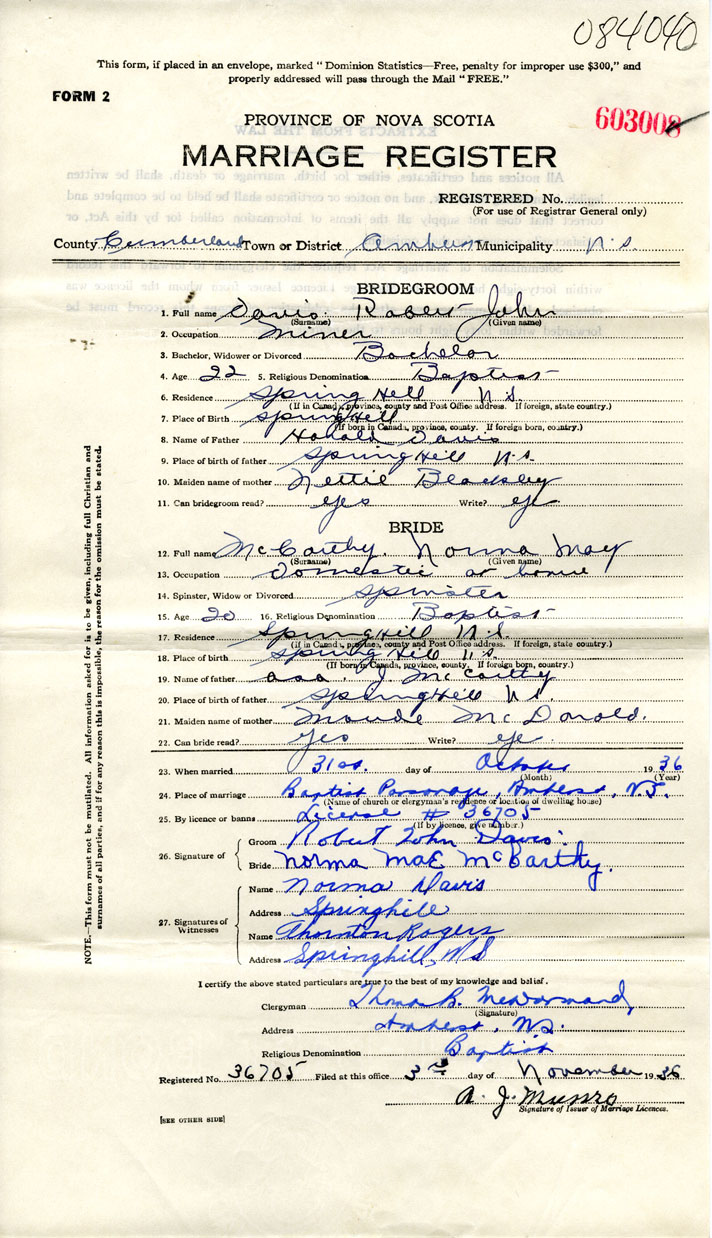 084040
This form, if placed in an envelope, marked “Dominion Statistics—Free, penalty for improper use $300,” and
properly addressed will pass through the Mail “FREE.”
FORM 2
603008
PROVINCE OF NOVA SCOTIA
MARRIAGE REGISTER
REGISTERED No.
(For use of Registrar General only)
County Cumberland Town or District Amherst Municipality N.S.
BRIDEGROOM
1. Full name Davis. Robert John
(Surname) (Given name)
2. Occupation Miner
3. Bachelor, Widower or Divorced Bachelor
4. Age 22 5. Religious Denomination Baptist
6. Residence Spring Hill N.S.
(If in Canada, province, county and Post Office address. If foreign, state country.)
7. Place of Birth Spring Hill
(If born in Canada, province, county. If foreign born, country.)
8. Name of Father Harold Davis
9. Place of birth of father Spring Hill N.S.
10. Maiden name of mother Nettie
11. Can bridegroom read? yes Write? ye
BRIDE
12. Full name McCarthy. Norma May
(Surname) (Given name)
13. Occupation Domestic at home
14. Spinster, Widow or Divorced Spinster
15. Age 20 16. Religious Denomination Baptist
17. Residence Spring Hill N.S.
(If in Canada, province, county and Post Office address. If foreign, state country.)
18. Place of birth Spring Hill N.S.
(If born in Canada, province, county. If foreign born, country.)
19. Name of father Asa. J. McCarthy
20. Place of birth of father Spring Hill N.S.
21. Maiden name of mother Maude McDonald.
22. Can bride read? yes Write? ye
23. When married 31st. day of October 1936
(Month) (Year)
24. Place of marriage Baptist Parsonage, Amherst, N.S.
(Name of church or clergyman's residence or location of dwelling house)
25. By licence or banns License # 36705
(If by licence, give number.)
26. Signature of
Groom Robert John Davis.
Bride Norma Mae McCarthy.
27. Signatures of Witnesses
Name Norma Davis
Address Springhill
Name Thornton Rogers
Address Springhill, N S
I certify the above stated particulars are true to the best of my knowledge and belief.
Clergyman B.
(Signature)
Address Amherst, N.S.
Religious Denomination Baptist
Registered No. 36705 Filed at this office 3rd day of November 1936
A. J. Munro
Signature of Issuer of Marriage Licences.
[SEE OTHER SIDE]
NOTE.—This form must not be mutilated. All information asked for is to be given, including full Christian and
surnames of all parties, and if for any reason this is impossible, the reason for the omission must be stated.